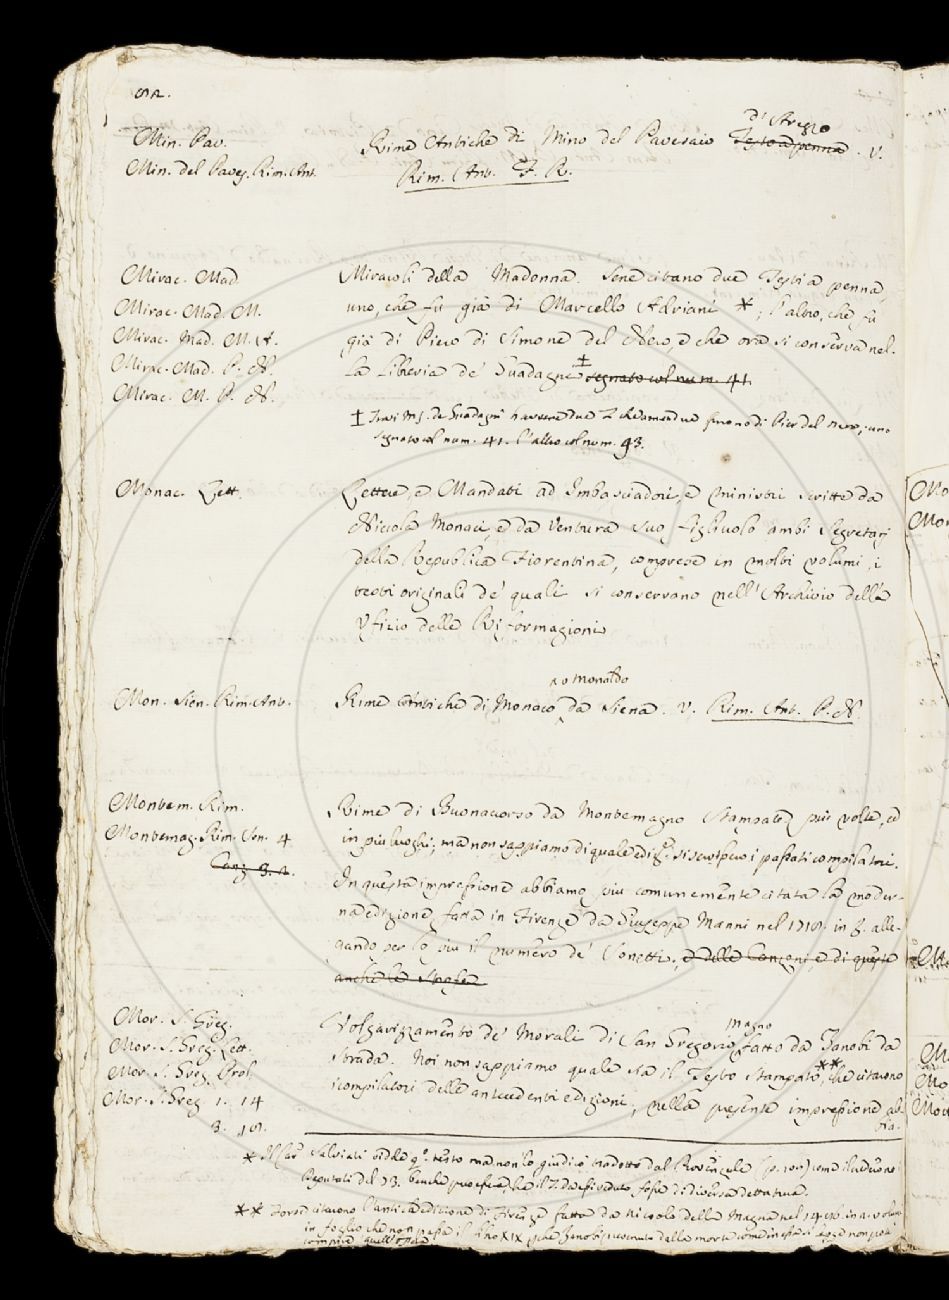 Min. Pav.
Min. del Paves. Rim. Ant.
d'Arezzo
Rime Antiche di Mino del Pavesaio Testo a penna. V.
Rim. Ant. F. R.
Mirac. Mad.
Mirac. Mad. M.
Mirac. Mad. M. A.
Mirac. Mad. P. N.
Mirac. M. P. N.
Miracoli della Madonna. Sene citano due Testi a penna,
uno, che fu già di Marcello Adriani *; l'altro, che fu
già di Piero di Simone del Nero, e che ora si conserva nel-
la Libreria de' Guadagni ‡ segnato col num. 41.
‡ Tra i MS. de Guadagni due furono di Pier del Nero; uno
segnato col num. 41. l'altro col num. 93.
Monac. Lett.
Lettere, e Mandati ad Imbasciadori, e Ministri scritte da
Niccola Monaci, e da Ventura suo figliuolo ambi Segretarj
della Repubblica Fiorentina, comprese in molti volumi, i
testi originali de' quali si conservano nell'Archivio dell'
Uficio delle Riformagioni
Mon. Sien. Rim. Ant.
o Monaldo
Rime Antiche di Monaco da Siena. V. Rim. Ant. P. N.
Montem. Rim.
Montemag. Rim. Son. 4
Canz. 3. 2.
Rime di Buonacorso da Montemagno stampate più volte, ed
in più luoghi; ma non sappiamo di quale ediz. si servissero i passati compilatori.
In questa impressione abbiamo più comunemente citata la moder-
na edizione fatta in Firenze da Giuseppe Manni nel 1718. in 8. alle-
gando per lo più il numero de' Sonetti, e delle Canzoni, e di queste
anche le strofe
Mor. S. Greg.
Mor. S. Greg. Lett.
Mor. S. Greg. Prol.
Mor. S. Greg. 1. 14
Magno
Volgarizzamento de' Morali di San Gregorio fatto da Zanobi da
Strada. Noi non sappiamo quale sia il Testo stampato **, che citarono
i compilatori delle antecedenti edizioni; nella presente impressione ab-
bia-
* Il Salviati vidde q.° testo ma non lo giudicò tradotto dal Provenzale
del 73. di diversa dettatura.
** Forse citarono l'antica edizione di Firenze fatta da Niccolò della Magna nel
in foglio che non passa il libro XIX Zanobi prevenuto dalla morte
compire quell'Opera